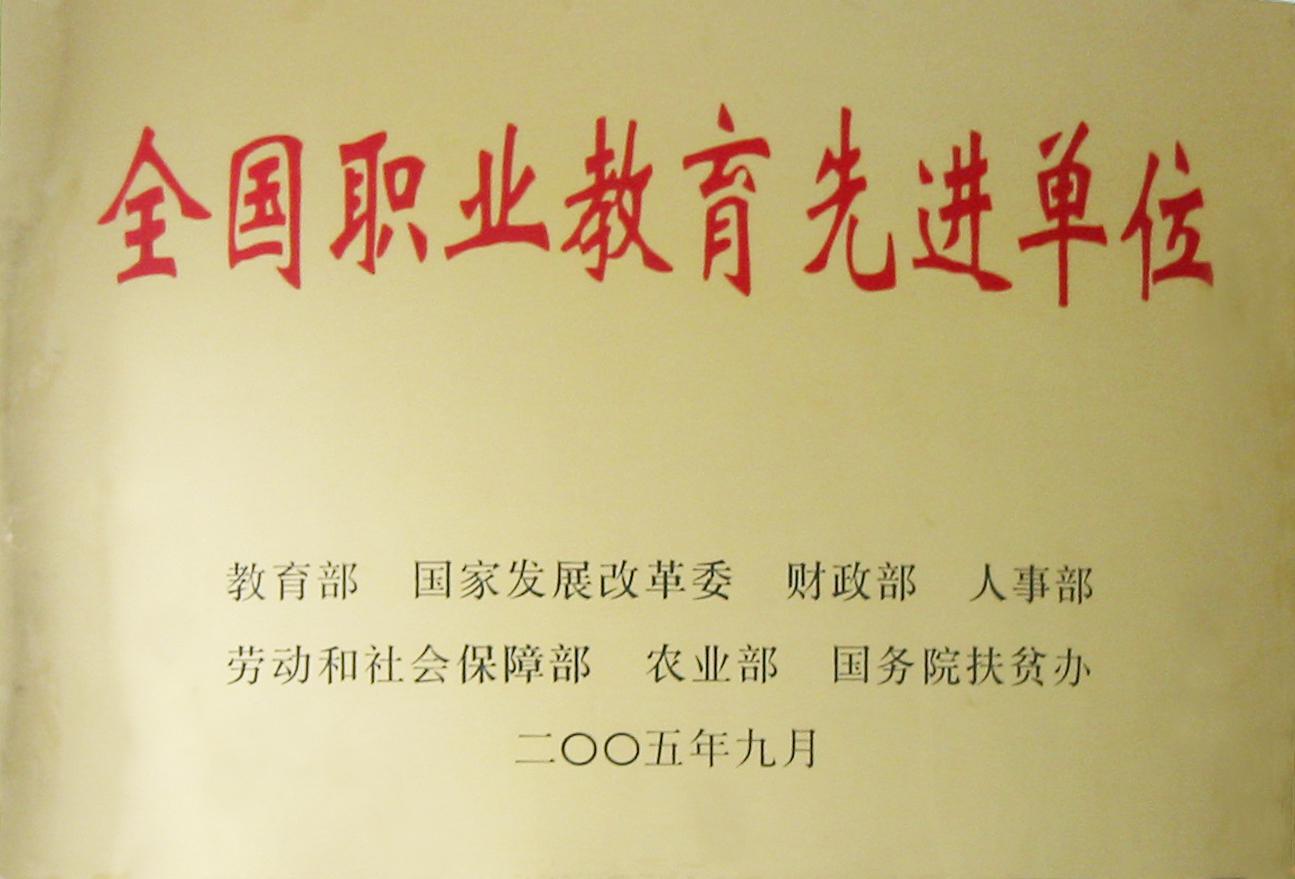 全国职业教育先进单位
教育部 国家发展改革委 财政部 人事部
劳动和社会保障部 农业部 国务院扶贫办
二〇〇五年九月